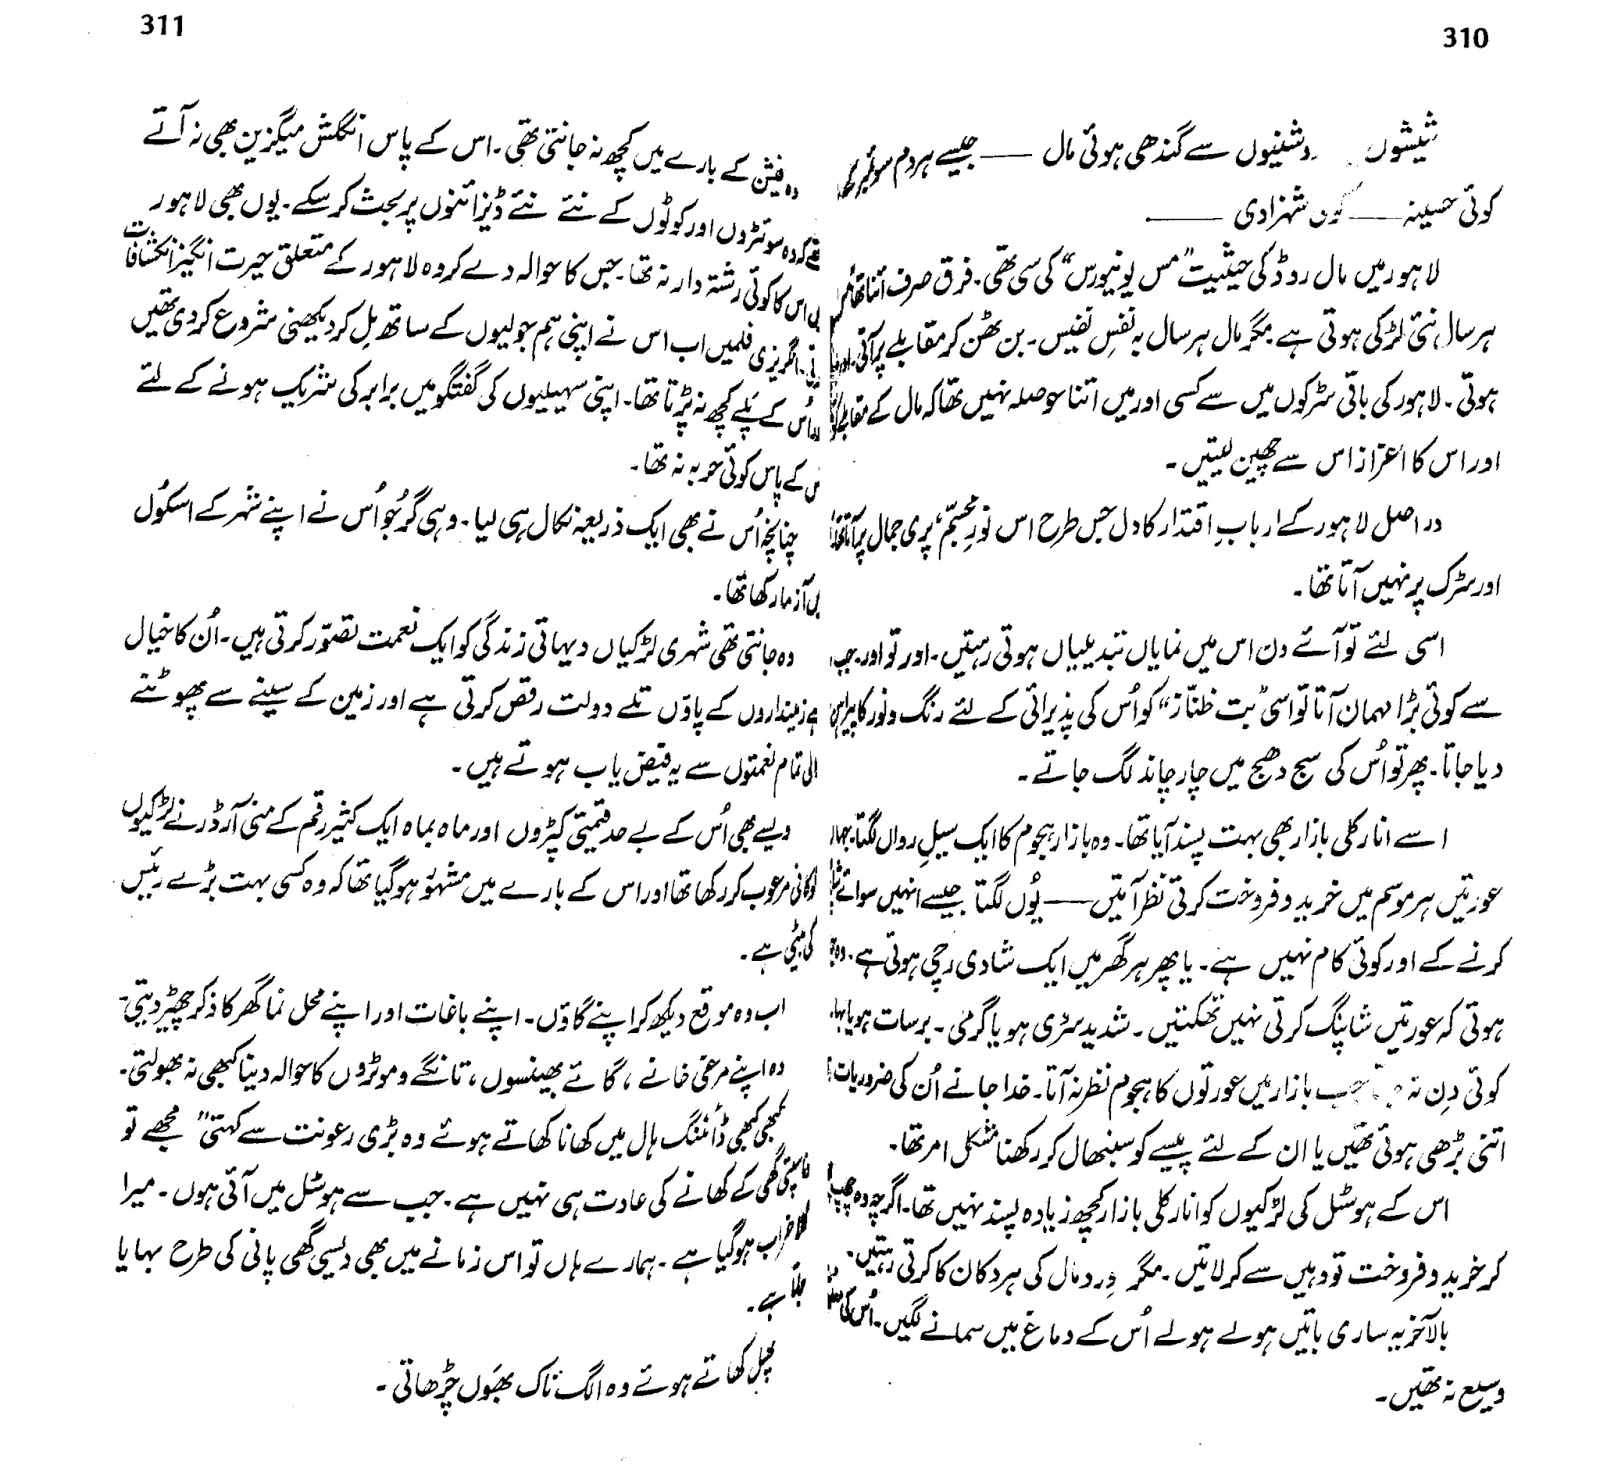 310
شیشوں روشنیوں سے گندھی ہوئی مال — جیسے ہر دم سوئمبر
کوئی حسینہ — کوئی شہزادی —
لاہور میں مال روڈ کی حیثیت "مس یونیورس" کی سی تھی۔ فرق صرف اتنا تھا
ہر سال نئی لڑکی ہوتی ہے مگر مال ہر سال بہ نفسِ نفیس۔ بن ٹھن کر مقابلے پر آتی۔
ہوتی۔ لاہور کی باقی سڑکوں میں سے کسی اور میں اتنا حوصلہ نہیں تھا کہ مال کے مقابلے
اور اس کا اعزاز اس سے چھین لیتیں۔
در اصل لاہور کے اربابِ اقتدار کا دل جس طرح اس نورِ مجسّم، پری جمال پر آتا تھا
اور سڑک پر نہیں آتا تھا۔
اسی لئے تو آئے دن اس میں نمایاں تبدیلیاں ہوتی رہتیں۔ اور تو اور جب
سے کوئی بڑا مہمان آتا تو اسی "بت طنّاز" کو اُس کی پذیرائی کے لئے رنگ و نور کا پیراہن
دیا جاتا۔ پھر تو اُس کی سج دھج میں چار چاند لگ جاتے۔
اسے انارکلی بازار بھی بہت پسند آیا تھا۔ وہ بازار ہجوم کا ایک سیلِ رواں لگتا۔ جہاں
عورتیں ہر موسم میں خرید و فروخت کرتی نظر آتیں — یُوں لگتا جیسے انہیں سوائے
کرنے کے اور کوئی کام نہیں ہے۔ یا پھر ہر گھر میں ایک شادی رچی ہوتی ہے۔
ہوتی کہ عورتیں شاپنگ کرتی نہیں تھکتیں۔ شدید سردی ہو یا گرمی۔ برسات ہو یا بہار
کوئی دن نہ جب بازار میں عورتوں کا ہجوم نظر نہ آتا۔ خدا جانے اُن کی ضروریات
اتنی بڑھی ہوئی تھیں یا ان کے لئے پیسے کو سنبھال کر رکھنا مشکل امر تھا۔
اس کے ہوسٹل کی لڑکیوں کو انارکلی بازار کچھ زیادہ پسند نہیں تھا۔ اگرچہ وہ چھپ
کر خرید و فروخت تو وہیں سے کر لاتیں۔ مگر وِرد مال کی ہر دکان کا کرتی رہتیں۔
بالآخر یہ ساری باتیں ہولے ہولے اُس کے دماغ میں سمانے لگیں۔ اُس کی
وسیع نہ تھیں۔
311
وہ فیشن کے بارے میں کچھ نہ جانتی تھی۔ اس کے پاس انگلش میگزین بھی نہ آتے
تھے کہ وہ سوئٹروں اور کوٹوں کے نئے نئے ڈیزائنوں پر بحث کر سکے۔ یوں بھی لاہور
اس کا کوئی رشتہ دار نہ تھا۔ جس کا حوالہ دے کر وہ لاہور کے متعلق حیرت انگیز انکشافات
انگریزی فلمیں اب اس نے اپنی ہم جولیوں کے ساتھ مل کر دیکھنی شروع کر دی تھیں
اُس کے پلے کچھ نہ پڑتا تھا۔ اپنی سہیلیوں کی گفتگو میں برابر کی شریک ہونے کے لئے
کے پاس کوئی حربہ نہ تھا۔
چنانچہ اُس نے بھی ایک ذریعہ نکال ہی لیا۔ وہی گُر جُو اُس نے اپنے شہر کے اسکول
آزما رکھا تھا۔
وہ جانتی تھی شہری لڑکیاں دیہاتی زندگی کو ایک نعمت تصوّر کرتی ہیں۔ اُن کا خیال
ہے زمینداروں کے پاؤں تلے دولت رقص کرتی ہے اور زمین کے سینے سے پھوٹنے
تمام نعمتوں سے یہ فیض یاب ہوتے ہیں۔
ویسے بھی اُس کے بے حد قیمتی کپڑوں اور ماہ بماہ ایک کثیر رقم کے منی آرڈر نے لڑکیوں
کو کافی مرعوب کر رکھا تھا اور اس کے بارے میں مشہور ہو گیا تھا کہ وہ کسی بہت بڑے رئیس
کی بیٹی ہے۔
اب وہ موقع دیکھ کر اپنے گاؤں۔ اپنے باغات اور اپنے محل نما گھر کا ذکر چھیڑ دیتی۔
وہ اپنے مرغی خانے، گائے بھینسوں، تانگے و موٹروں کا حوالہ دینا کبھی نہ بھولتی۔
کبھی کبھی ڈائننگ ہال میں کھانا کھاتے ہوئے وہ بڑی رعونت سے کہتی "مجھے تو
گھی کے کھانے کی عادت ہی نہیں ہے۔ جب سے ہوسٹل میں آئی ہوں۔ میرا
گلا خراب ہو گیا ہے۔ ہمارے ہاں تو اس زمانے میں بھی دیسی گھی پانی کی طرح بہایا
جاتا ہے۔
پھل کھاتے ہوئے وہ الگ ناک بھَوں چڑھاتی۔